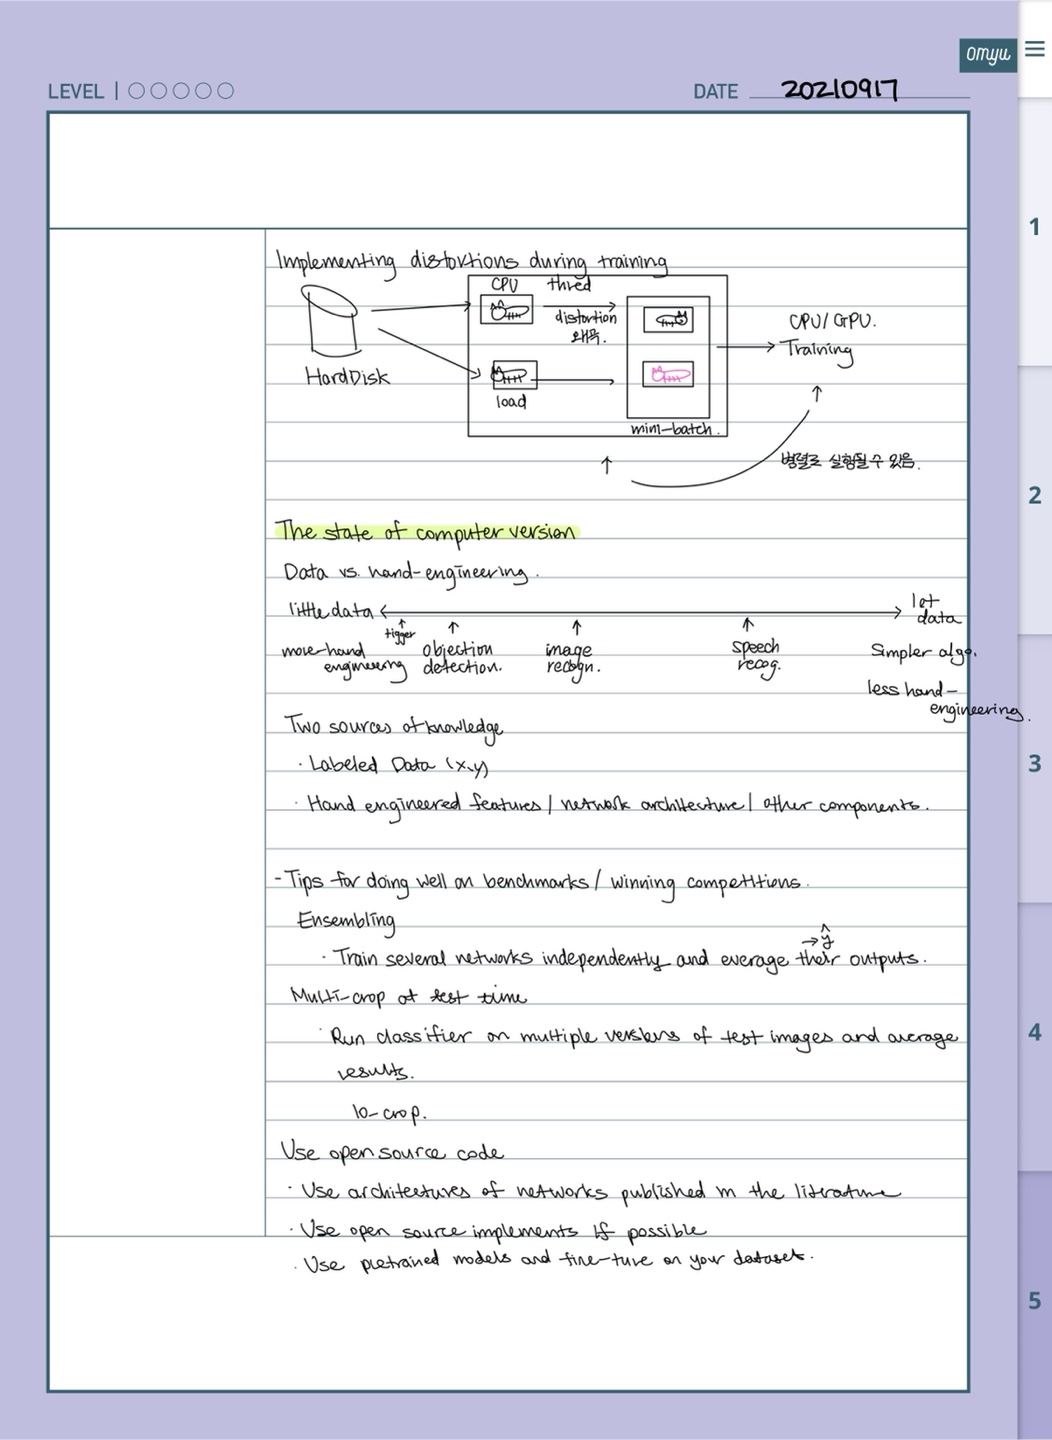 omyu
LEVEL
DATE 20210917
1
2
3
4
5
Implementing distortions during training
CPU thred
distortion
왜곡.
CPU/GPU.
Training
HardDisk
load
mini-batch.
병렬로 실행될 수 있음.
The state of computer version
Data vs. hand-engineering.
little data
lot data
tigger
more-hand engineering
objection detection.
image recogn.
speech recog.
Simpler algo.
less hand-engineering.
Two sources of knowledge
· Labeled Data (x,y)
· Hand engineered features / network architecture / other components.
- Tips for doing well on benchmarks / winning competitions.
Ensembling
→ ŷ
· Train several networks independently and everage their outputs.
Multi-crop at test time
· Run classifier on multiple versions of test images and average
results.
10-crop.
Use open source code
· Use architectures of networks published in the literature
· Use open source implements if possible
· Use pretrained models and fine-ture on your dataset.